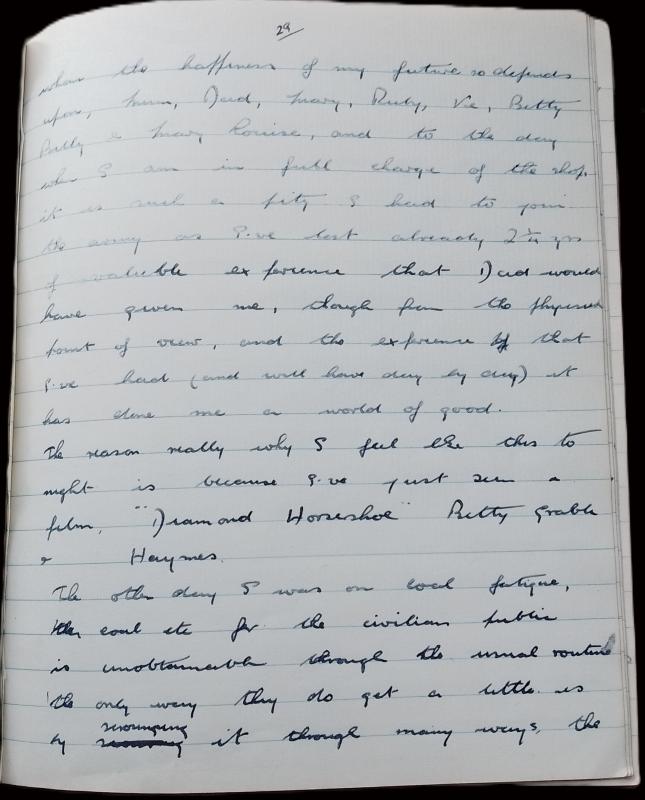 29
when the happiness of my future so depends
upon, mum, Dad, mary, Ruby, Vie, Betty
Billy & mary Louise, and to the day
when I am in full charge of the shop.
it is such a pity I had to join
the army as I've lost already 2¼ yrs
of valuble experience that Dad would
have given me, though from the physical
point of view, and the experience of that
I've had (and will have day by day) it
has done me a world of good.
The reason really why I feel like this to
night is because I've just seen a
film, "Diamond Horseshoe" Betty Grable
& Haymes.
The other day I was on coal fatigue,
the coal etc for the civilian public
is unobtainable through the usual routine
the only way they do get a little is
by scrounging it through many ways, the